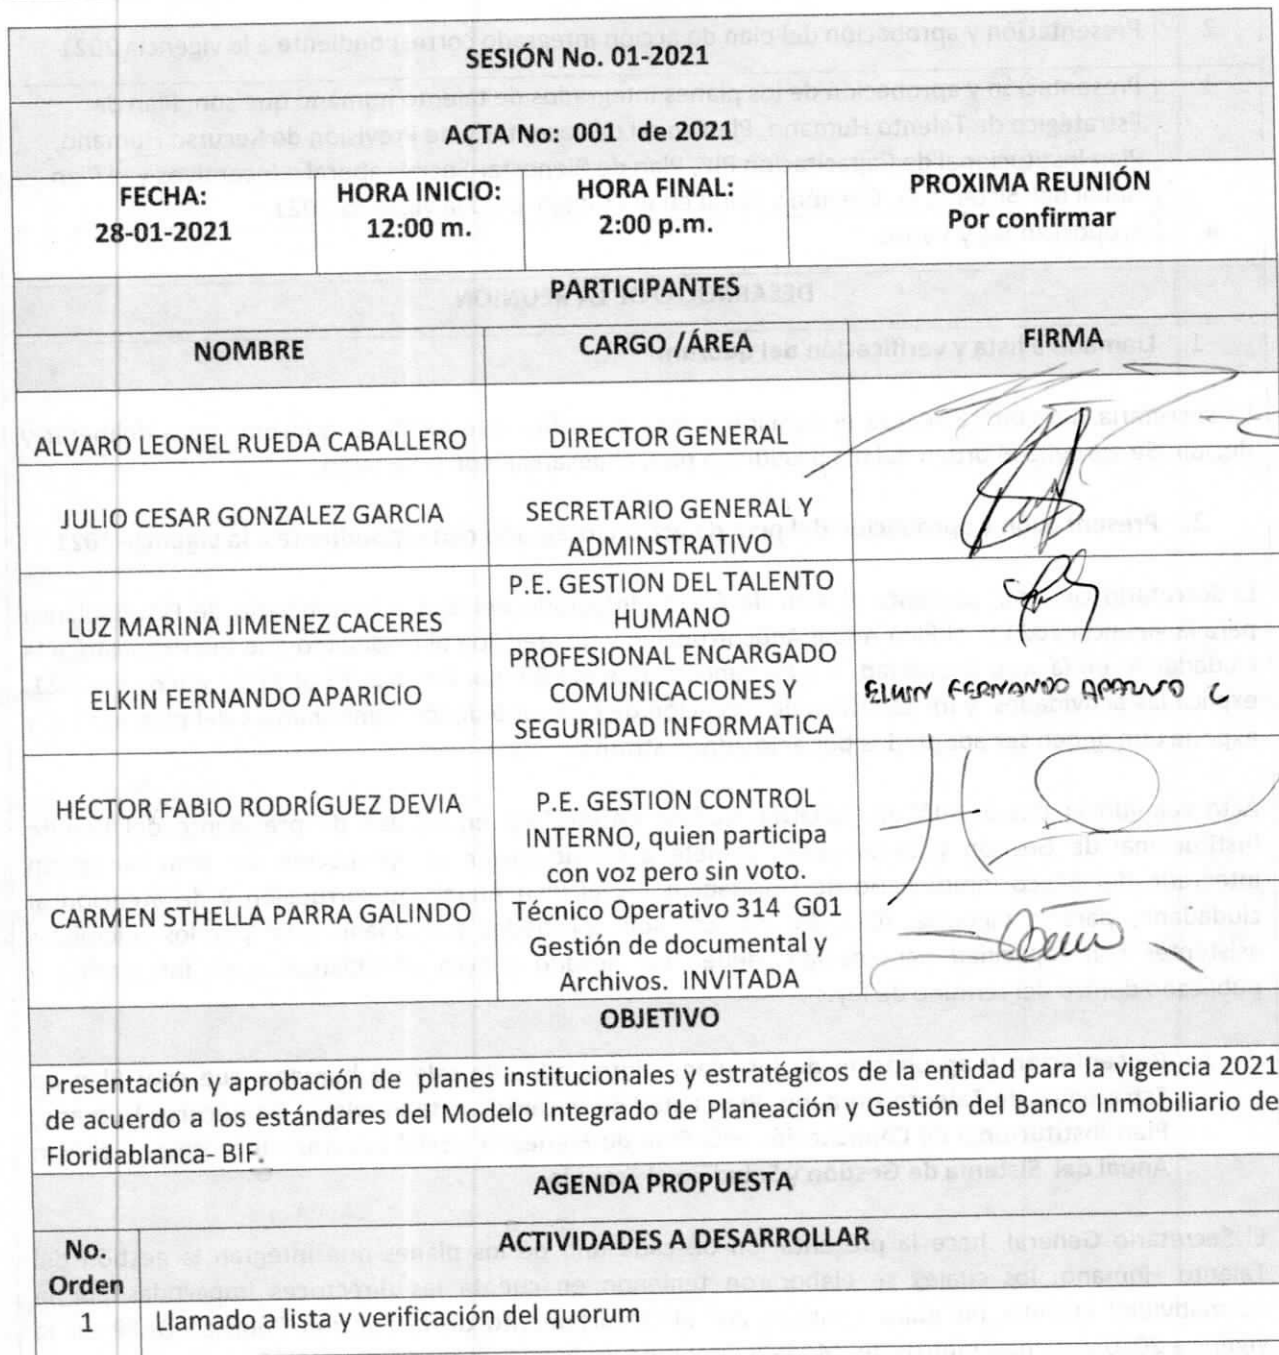 SESIÓN No. 01-2021
ACTA No: 001 de 2021
FECHA:
28-01-2021
HORA INICIO:
12:00 m.
HORA FINAL:
2:00 p.m.
PROXIMA REUNIÓN
Por confirmar
PARTICIPANTES
NOMBRE
CARGO /ÁREA
FIRMA
ALVARO LEONEL RUEDA CABALLERO
DIRECTOR GENERAL
JULIO CESAR GONZALEZ GARCIA
SECRETARIO GENERAL Y
ADMINSTRATIVO
LUZ MARINA JIMENEZ CACERES
P.E. GESTION DEL TALENTO
HUMANO
ELKIN FERNANDO APARICIO
PROFESIONAL ENCARGADO
COMUNICACIONES Y
SEGURIDAD INFORMATICA
ELKIN FERNANDO APARICIO C
HÉCTOR FABIO RODRÍGUEZ DEVIA
P.E. GESTION CONTROL
INTERNO, quien participa
con voz pero sin voto.
CARMEN STHELLA PARRA GALINDO
Técnico Operativo 314 G01
Gestión de documental y
Archivos. INVITADA
OBJETIVO
Presentación y aprobación de planes institucionales y estratégicos de la entidad para la vigencia 2021
de acuerdo a los estándares del Modelo Integrado de Planeación y Gestión del Banco Inmobiliario de
Floridablanca- BIF.
AGENDA PROPUESTA
No.
Orden
ACTIVIDADES A DESARROLLAR
1 Llamado a lista y verificación del quorum